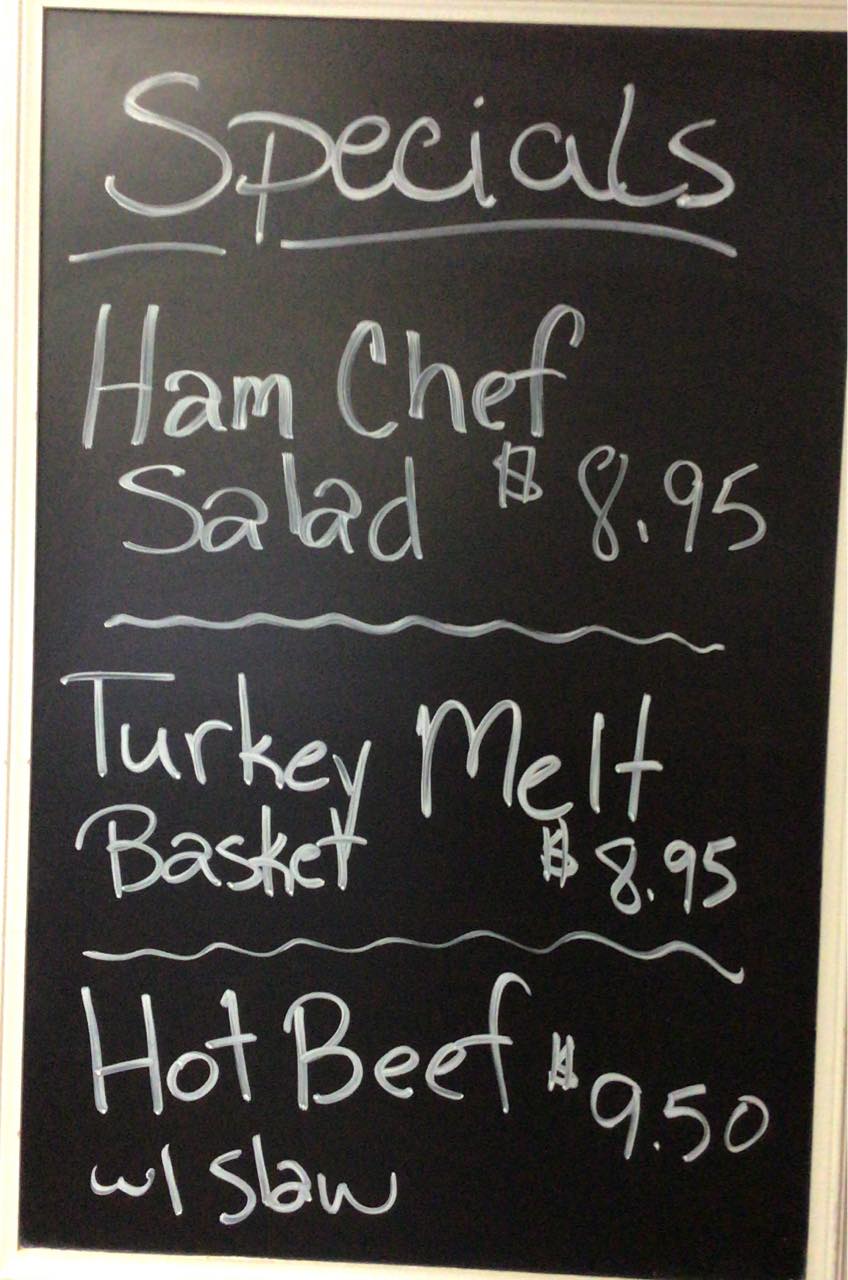 Specials
Ham Chef
Salad $ 8.95
Turkey Melt
Basket $ 8.95
Hot Beef $ 9.50
w/ slaw